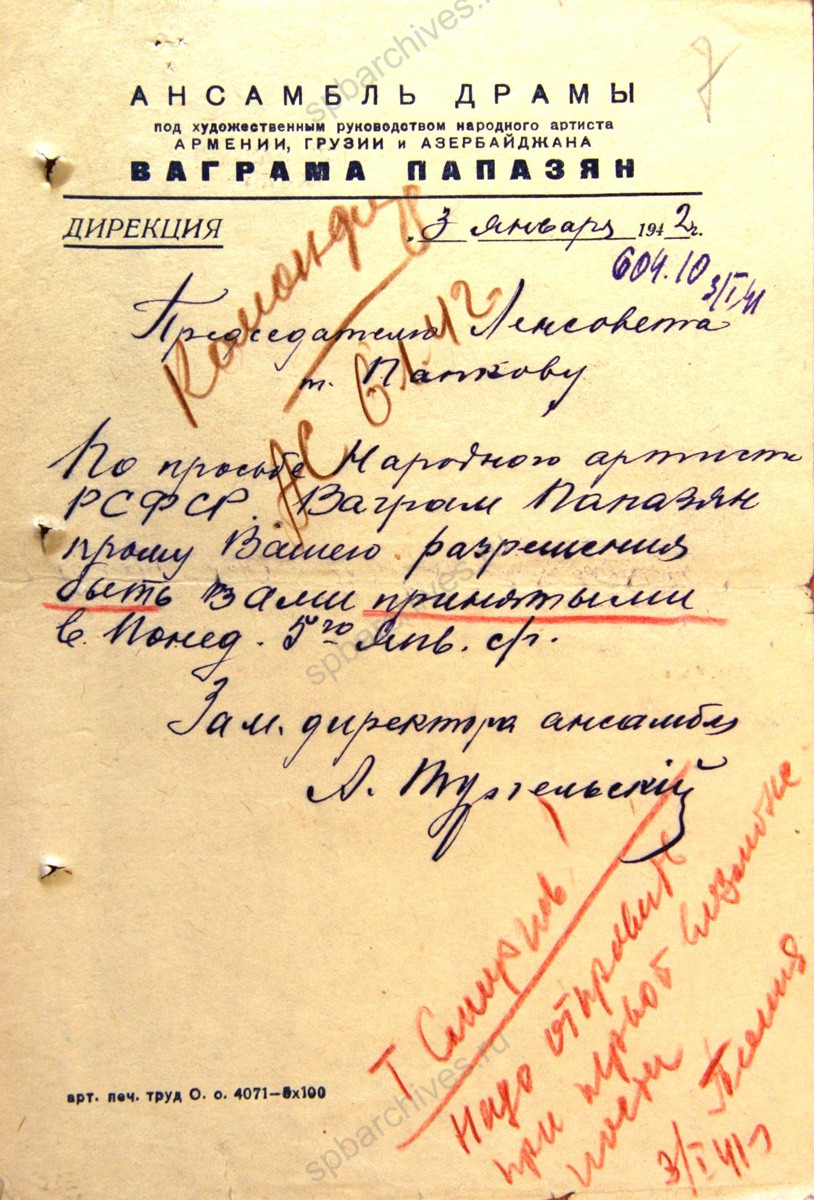 АНСАМБЛЬ ДРАМЫ
под художественным руководством народного артиста
АРМЕНИИ, ГРУЗИИ и АЗЕРБАЙДЖАНА
ВАГРАМА ПАПАЗЯН
ДИРЕКЦИЯ
„3 января 1942 г.
604.10
3/I/41
Председателю Ленсовета
т. Попкову
По просьбе Народного артиста
РСФСР. Ваграм Папазян
прошу Вашего разрешения
быть Вами принятыми
в Понед. 5го Янв. с/г.
Зам. директора ансамбля
А.
6/I.42
Т Смирнов!
Надо отправить
при первой возможно
ности
3/I 41 г
арт. печ. труд О. о. 4071—5х100
spbarchives.ru
spbarchives.ru
spbarchives.ru